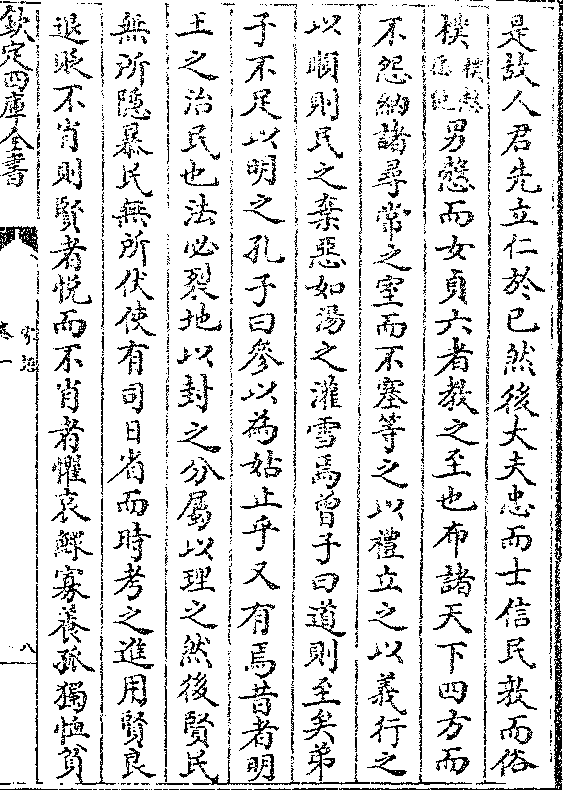 是故人君先立仁於已然後大夫忠而士信民敦而俗
樸男慤而女貞六者教之至也布諸天下四方而
不怨納諸尋常之室而不塞等之以禮立之以義行之
以順則民之棄惡如湯之灌雪焉曾子曰道則至矣弟
子不足以明之孔子曰參以為姑止乎又有焉昔者明
王之治民也法必裂地以封之分屬以理之然後賢民
無所隱暴民無所伏使有司日省而時考之進用賢良
退貶不肖則賢者悅而不肖者懼哀鰥寡養孤獨恤貧
欽定四庫全書
家語
卷一
八